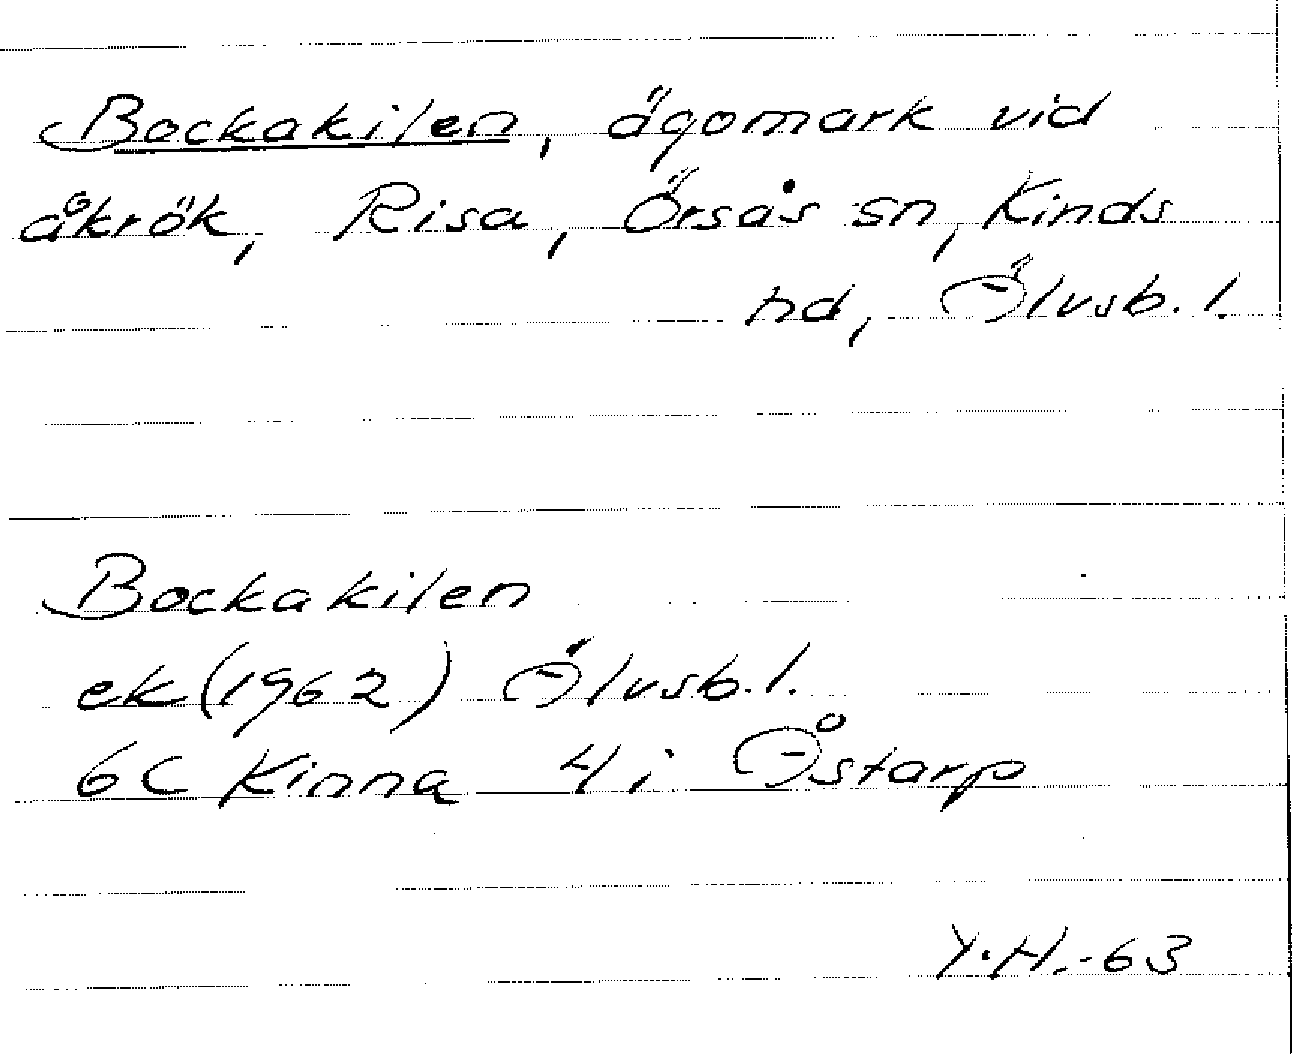 Bockakilen, ägomark vid
åkrök, Risa, Örsås sn, Kinds
hd, Älvsb. l.
Bockakilen
ek (1962) Älvsb. l.
6C Kinna 4i Åstarp
Y.H.-63